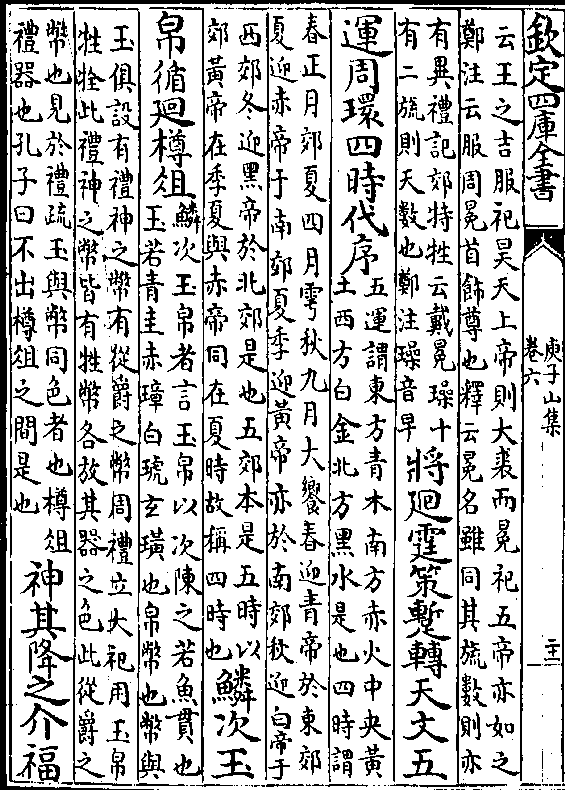 欽定四庫全書
庾子山集
卷六
二十一
云王之吉服祀昊天上帝則大裘而冕祀五帝亦如之
鄭注云服周冕首飾尊也釋云冕名雖同其旒數則亦
有異禮記郊特牲云戴冕璪十
有二旒則天數也鄭注璪音早
將廻霆策蹔轉天文五
運周環四時代序
五運謂東方青木南方赤火中央黃
土西方白金北方黑水是也四時謂
春正月郊夏四月雩秋九月大饗春迎青帝於東郊
夏迎赤帝于南郊夏季迎黃帝亦於南郊秋迎白帝于
西郊冬迎黑帝於北郊是也五郊本是五時以
郊黃帝在季夏與赤帝同在夏時故稱四時也
鱗次玉
帛循廻樽俎
鱗次玉帛者言玉帛以次陳之若魚貫也
玉若青圭赤璋白琥玄璜也帛幣也幣與
玉俱設有禮神之幣有從爵之幣周禮立大祀用玉帛
牲牷此禮神之幣皆有牲幣各放其器之色此從爵之
幣也見於禮疏玉與幣同色者也樽俎
禮器也孔子曰不出樽俎之間是也
神其降之介福